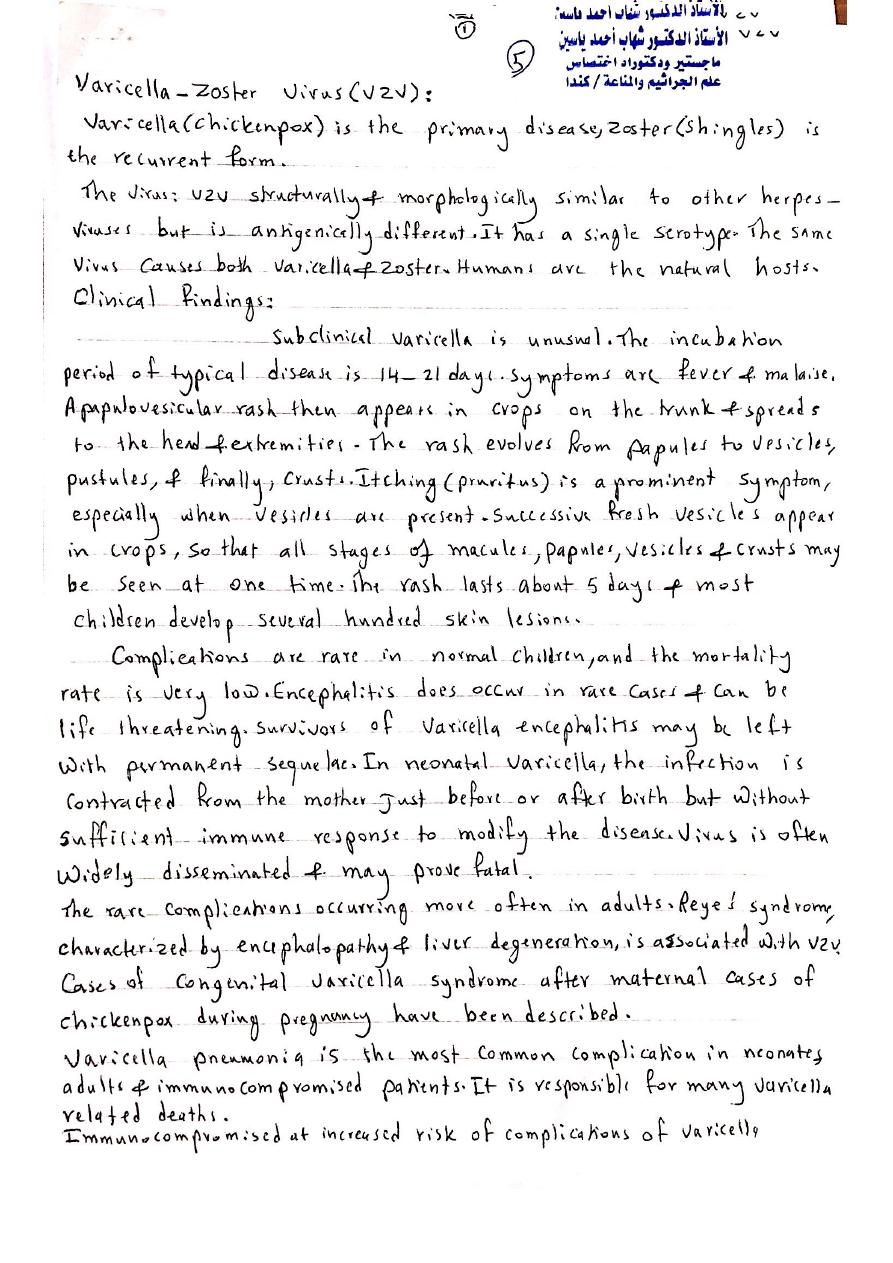 ①
الأستاذ الدكتور شهاب احمد ياسين
الأستاذ الدكتور شهاب أحمد ياسين
ماجستير ودكتوراد اختصاص
علم الجراثيم والمناعة / كندا
5
Varicella-Zoster Virus (VZV):
Varicella (chickenpox) is the primary disease, Zoster (shingles) is
the recurrent form.
The Virus: VZV structurally & morphologically similar to other herpes-
viruses but is antigenically different. It has a single serotype. The same
virus causes both varicella & zoster. Humans are the natural hosts.
Clinical findings:
Subclinical varicella is unusual. The incubation
period of typical disease is 14-21 days. symptoms are fever & malaise.
A papulovesicular rash then appears in crops on the trunk & spreads
to the head & extremities. The rash evolves from papules to vesicles,
pustules, & finally, crusts. Itching (pruritus) is a prominent symptom,
especially when vesicles are present. Successive fresh vesicles appear
in crops, so that all stages of macules, papules, vesicles & crusts may
be seen at one time. The rash lasts about 5 days & most
children develop several hundred skin lesions.
Complications are rare in normal children, and the mortality
rate is very low. Encephalitis does occur in rare cases & can be
life threatening. survivors of varicella encephalitis may be left
with permanent sequelae. In neonatal varicella, the infection is
contracted from the mother just before or after birth but without
sufficient immune response to modify the disease. Virus is often
widely disseminated & may prove fatal.
The rare complications occurring more often in adults. Reye's syndrome,
characterized by encephalopathy & liver degeneration, is associated with VZV.
Cases of congenital varicella syndrome after maternal cases of
chickenpox during pregnancy have been described.
Varicella pneumonia is the most common complication in neonates,
adults & immunocompromised patients. It is responsible for many varicella
related deaths.
Immunocompromised at increased risk of complications of varicella